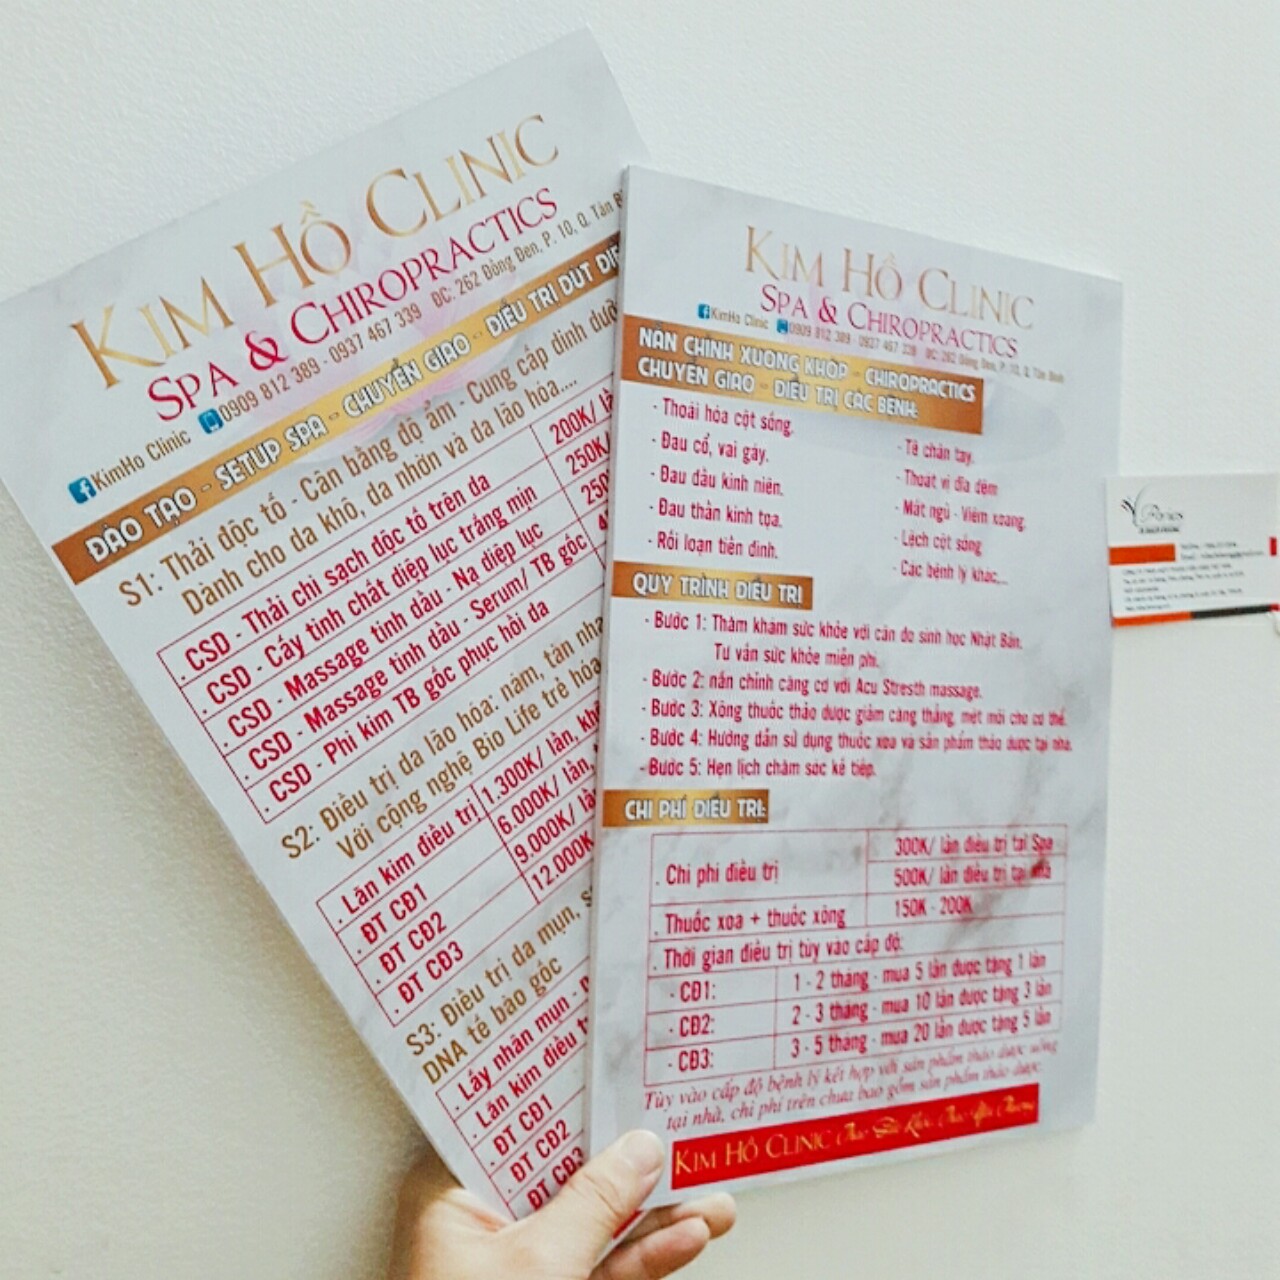 KIM HỒ CLINIC
SPA & CHIROPRACTICS
KimHo Clinic 0909 812 389 - 0937 467 339 ĐC: 262 Đồng Đen, P. 10, Q. Tân
ĐÀO TẠO - SETUP SPA - CHUYỂN GIAO - ĐIỀU TRỊ DỨT
S1: Thải độc tố - Cân bằng độ ẩm - Cung cấp dinh
Dành cho da khô, da nhờn và da lão hóa....
. CSD - Thải chì sạch độc tố trên da 200K/
. CSD - Cấy tinh chất diệp lục trắng mịn 250K/
. CSD - Massage tinh dầu - Nạ diệp lục
. CSD - Massage tinh dầu - Serum/ TB gốc
. CSD - Phi kim TB gốc phục hồi da
S2: Điều trị da lão hóa: nám, tàn
Với công nghệ Bio Life trẻ hóa
. Lăn kim điều trị 1.300K/ lần,
. ĐT CĐ1 6.000K/ lần,
. ĐT CĐ2 9.000K/
. ĐT CĐ3 12.000K
S3: Điều trị da mụn,
DNA tế bào gốc
. Lấy nhân mun -
. Lăn kim điều
. ĐT CĐ1
. ĐT CĐ2
. ĐT CĐ3
KIM HỒ CLINIC
SPA & CHIROPRACTICS
KimHo Clinic 0909 812 389 - 0937 467 339 ĐC: 262 Đồng Đen, P. 10, Q. Tân Bình
NẮN CHỈNH XƯƠNG KHỚP - CHIROPRACTICS
CHUYỂN GIAO - ĐIỀU TRỊ CÁC BỆNH:
- Thoái hóa cột sống.
- Đau cổ, vai gáy.
- Đau đầu kinh niên.
- Đau thần kinh tọa.
- Rối loạn tiền đình.
- Tê chân tay.
- Thoát vị đĩa đệm
- Mất ngủ - Viêm xoang.
- Lệch cột sống
- Các bệnh lý khác,...
QUY TRÌNH ĐIỀU TRỊ
- Bước 1: Thăm khám sức khỏe với cân đo sinh học Nhật Bản.
Tư vấn sức khỏe miễn phí.
- Bước 2: nắn chỉnh căng cơ với Acu Stresth massage.
- Bước 3: Xông thuốc thảo dược giảm căng thẳng, mệt mỏi cho cơ thể.
- Bước 4: Hướng dẫn sử dụng thuốc xoa và sản phẩm thảo dược tại nhà.
- Bước 5: Hẹn lịch chăm sóc kế tiếp.
CHI PHÍ ĐIỀU TRỊ:
. Chi phí điều trị 300K/ lần điều trị tại Spa
500K/ lần điều trị tại nhà
. Thuốc xoa + thuốc xông 150K - 200K
. Thời gian điều trị tùy vào cấp độ:
- CĐ1: 1 - 2 tháng - mua 5 lần được tặng 1 lần
- CĐ2: 2 - 3 tháng - mua 10 lần được tặng 3 lần
- CĐ3: 3 - 5 tháng - mua 20 lần được tặng 5 lần
Tùy vào cấp độ bệnh lý kết hợp với sản phẩm thảo dược uống
tại nhà, chi phí trên chưa bao gồm sản phẩm thảo dược.
KIM HỒ CLINIC